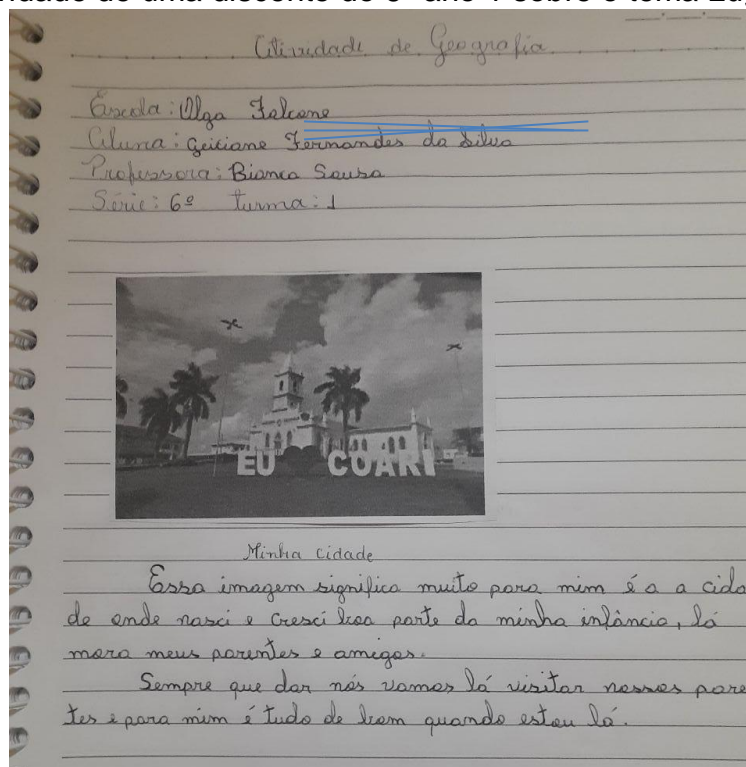 Atividade de Geografia
Escola: Olga Falcone
Aluna: Geiciane Fernandes da Silva
Professora: Bianca Sousa
Série: 6º turma: 1
EU COARI
Minha cidade
Essa imagem significa muito para mim é a a cida
de onde nasci e cresci boa parte da minha infância, lá
mora meus parentes e amigos.
Sempre que dar nós vamos lá visitar nossos pare
tes e para mim é tudo de bom quando estou lá.